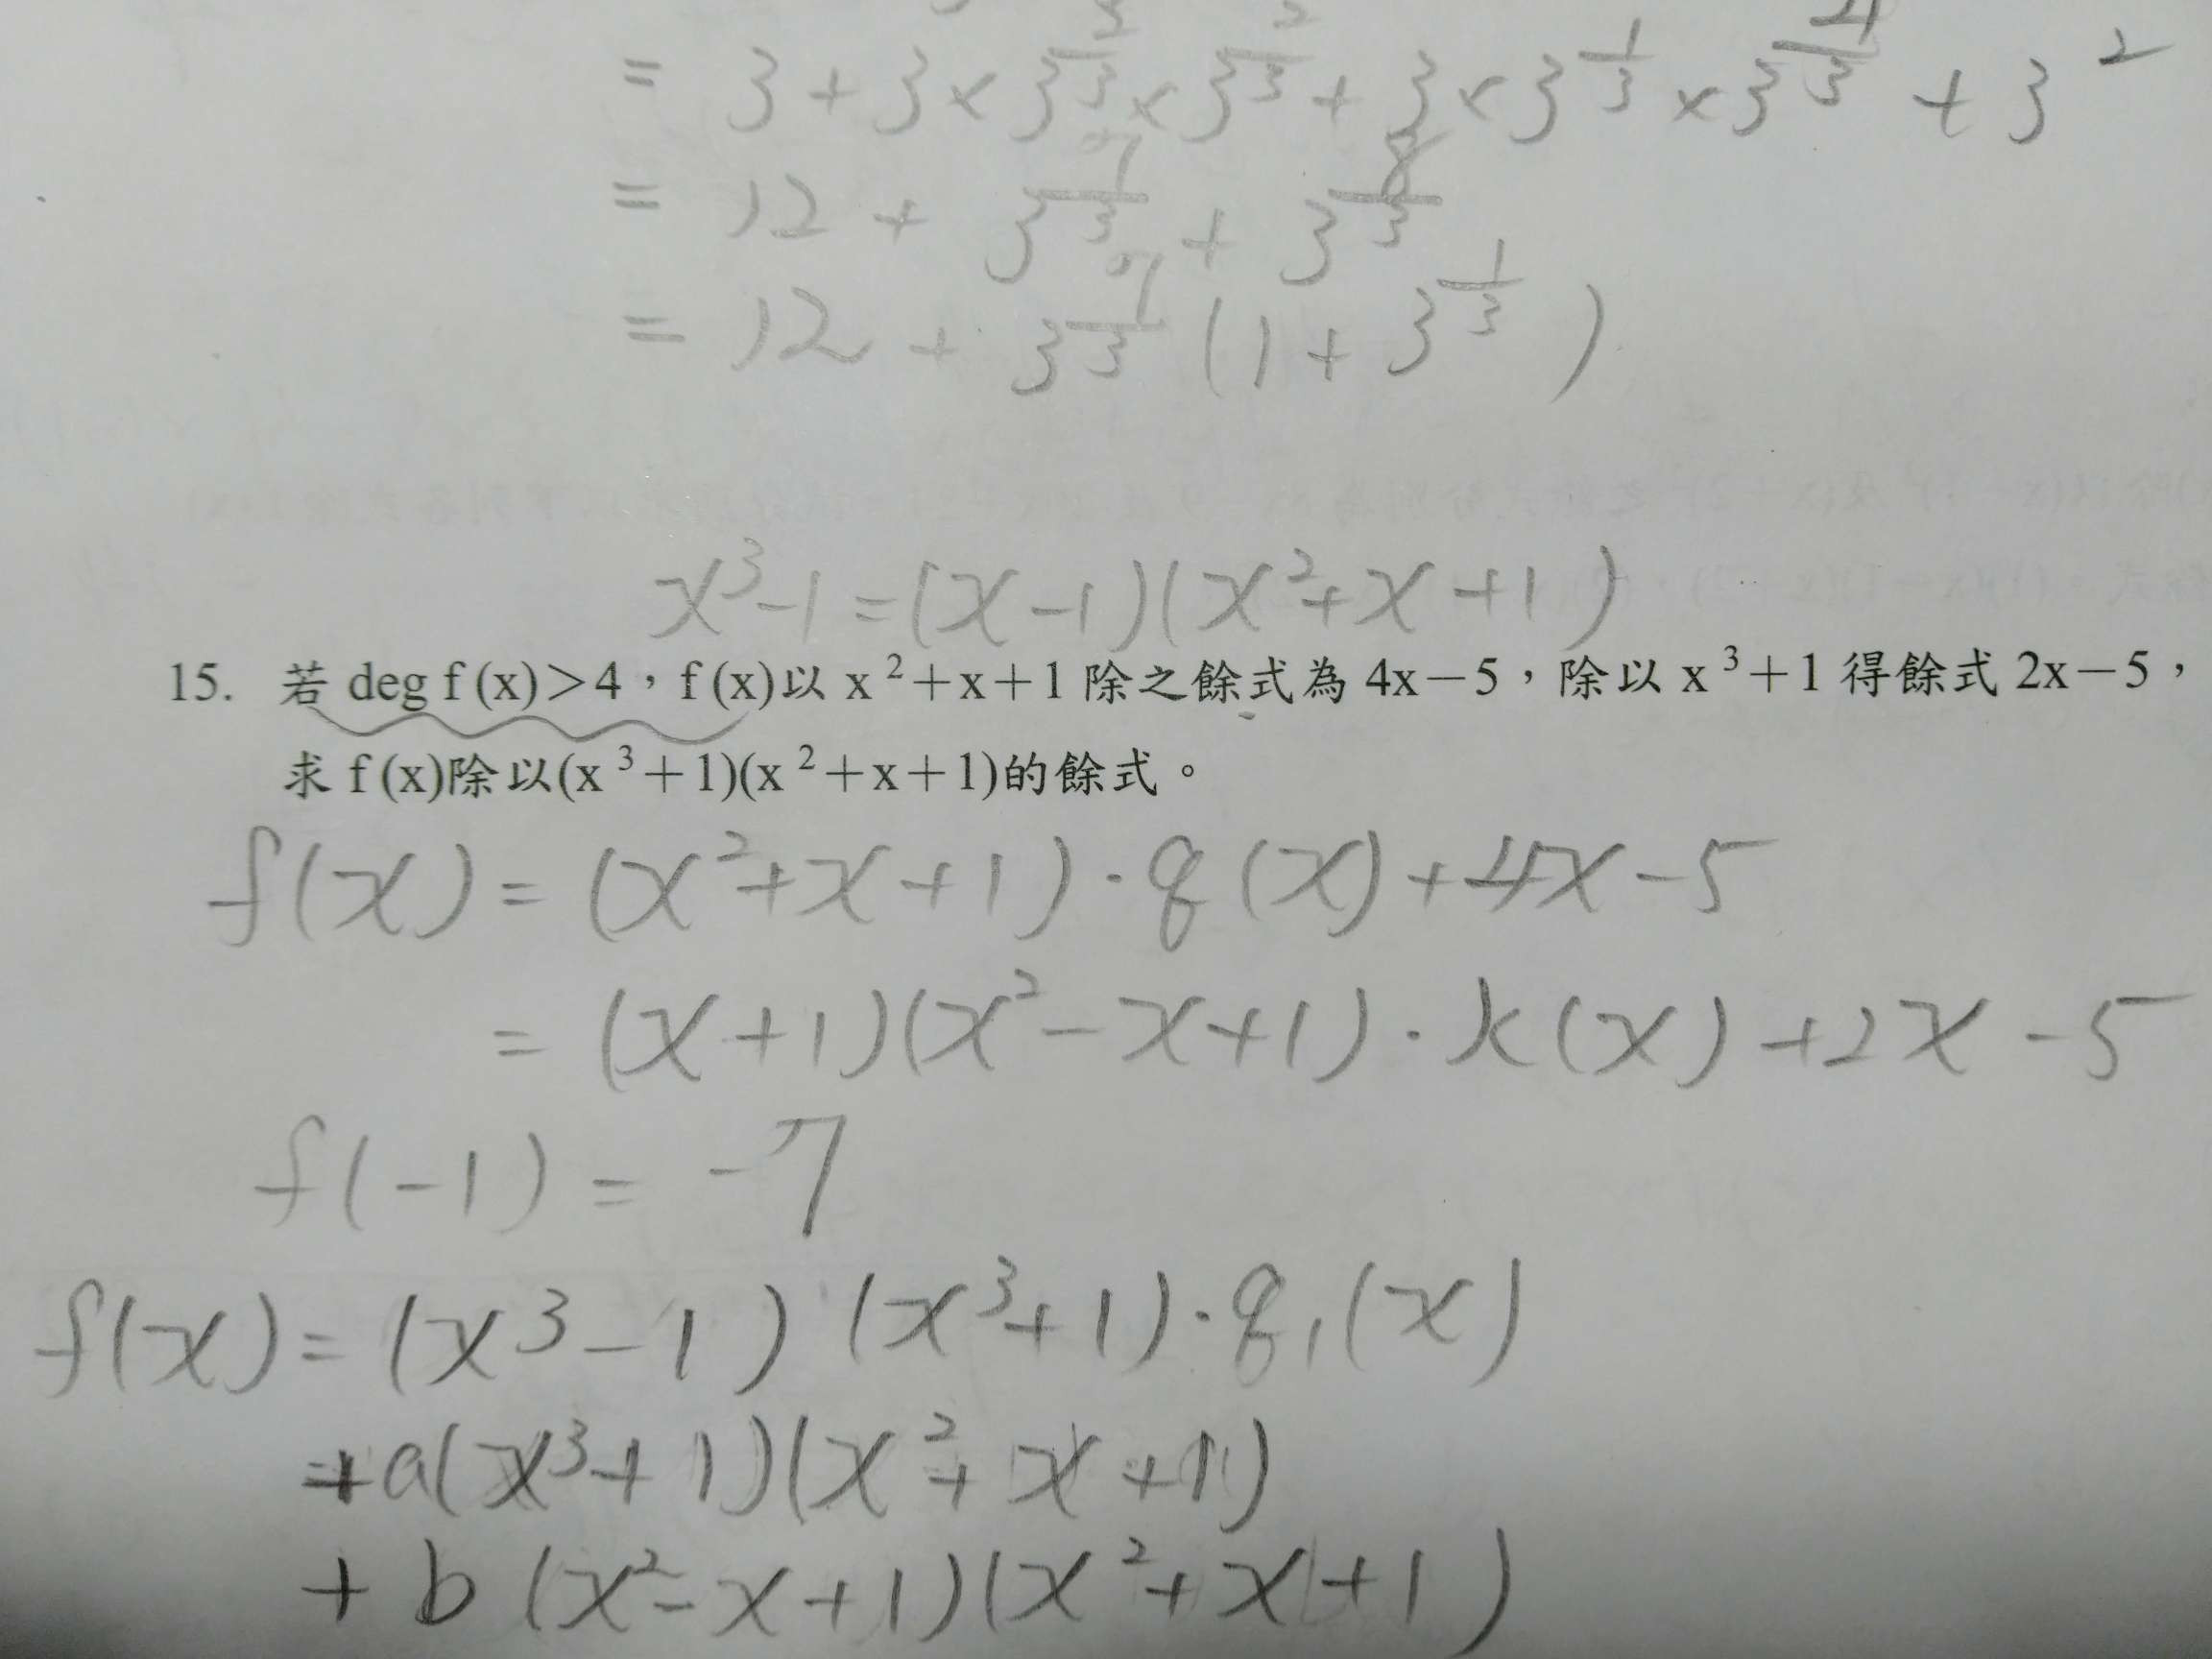 = 3 + 3 × 3^{2/3} × 3^{2/3} + 3 × 3^{1/3} × 3^{4/3} + 3^2
= 12 + 3^{7/3} + 3^{8/3}
= 12 + 3^{7/3} (1 + 3^{1/3})
x^3 - 1 = (x - 1)(x^2 + x + 1)
15. 若 deg f (x)>4,f (x)以 x^2+x+1 除之餘式為 4x-5,除以 x^3+1 得餘式 2x-5,
求 f (x)除以(x^3+1)(x^2+x+1)的餘式。
f(x) = (x^2 + x + 1) · q(x) + 4x - 5
= (x + 1)(x^2 - x + 1) · k(x) + 2x - 5
f(-1) = -7
f(x) = (x^3 - 1) (x^3 + 1) · q_1(x)
+ a(x^3 + 1)(x^2 + x + 1)
+ b (x^2 - x + 1)(x^2 + x + 1)